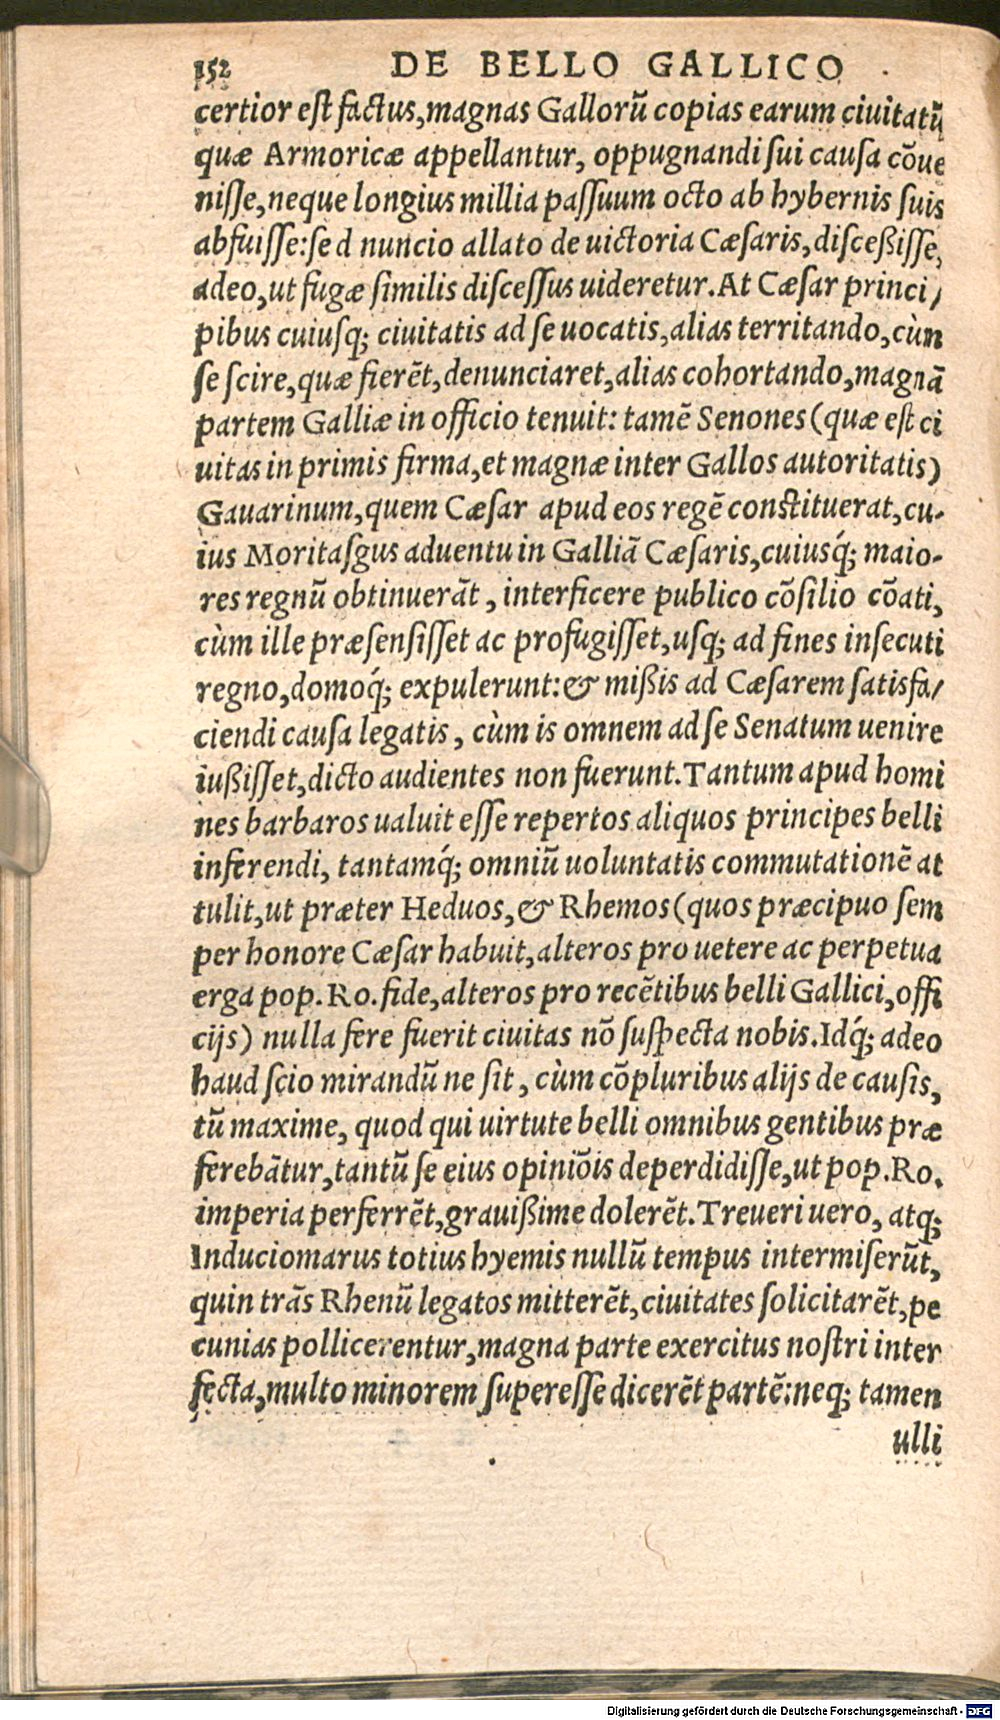 152 DE BELLO GALLICO
certior eſt factus, magnas Gallorũ copias earum ciuitatũ
quæ Armoricæ appellantur, oppugnandi ſui cauſa cõue
niſſe, neque longius millia paſſuum octo ab hybernis ſuis
abfuiſſe: ſed nuncio allato de uictoria Cæſaris, diſceßiſſe,
adeo, ut fugæ ſimilis diſceſſus uideretur. At Cæſar princi/
pibus cuiuſq; ciuitatis ad ſe uocatis, alias territando, cùm
ſe ſcire, quæ fierẽt, denunciaret, alias cohortando, magnã
partem Galliæ in officio tenuit: tamẽ Senones (quæ eſt ci
uitas in primis firma, et magnæ inter Gallos autoritatis)
Gauarinum, quem Cæſar apud eos regẽ conſtituerat, cu-
ius Moritaſgus aduentu in Galliã Cæſaris, cuiusq́; maio-
res regnũ obtinuerãt, interficere publico cõſilio cõati,
cùm ille præſenſiſſet ac profugiſſet, uſq; ad fines inſecuti
regno, domoq́; expulerunt: & mißis ad Cæſarem ſatisfa/
ciendi cauſa legatis, cùm is omnem ad ſe Senatum uenire
iußiſſet, dicto audientes non fuerunt. Tantum apud homi
nes barbaros ualuit eſſe repertos aliquos principes belli
inferendi, tantamq́; omniũ uoluntatis commutationẽ at
tulit, ut præter Heduos, & Rhemos (quos præcipuo ſem
per honore Cæſar habuit, alteros pro uetere ac perpetua
erga pop. Ro. fide, alteros pro recẽtibus belli Gallici, offi
cijs) nulla fere fuerit ciuitas nõ ſuſpecta nobis. Idq́; adeo
haud ſcio mirandũ ne ſit, cùm cõpluribus alijs de cauſis,
tũ maxime, quod qui uirtute belli omnibus gentibus præ
ferebãtur, tantũ ſe eius opiniõis deperdidiſſe, ut pop. Ro.
imperia perferrẽt, grauißime dolerẽt. Treueri uero, atq;
Induciomarus totius hyemis nullũ tempus intermiſerũt,
quin trãs Rhenũ legatos mitterẽt, ciuitates ſolicitarẽt, pe
cunias pollicerentur, magna parte exercitus noſtri inter
fecta, multo minorem ſupereſſe dicerẽt partẽ: neq; tamen
ulli
Digitalisierung gefördert durch die Deutsche Forschungsgemeinschaft - DFG